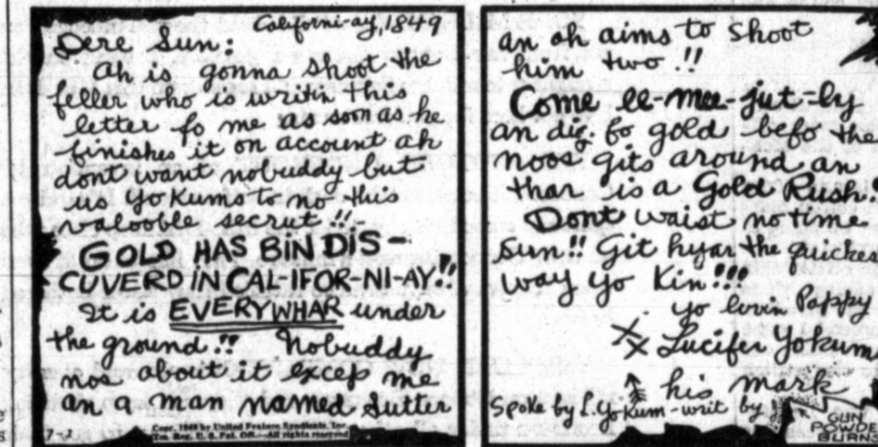 Californi-ay, 1849
Dere Sun:
Ah is gonna shoot the
feller who is writin this
letter fo me as soon as he
finishes it on account ah
dont want nobuddy but
us Yokums to no this
valooble secrut!!-
GOLD HAS BIN DIS-
CUVERD IN CAL-IFOR-NI-AY!!
It is EVERYWHAR under
the ground!! Nobuddy
nos about it excep me
an a man named Sutter
7-2
Copr. 1949 by United Feature Syndicate, Inc.
Tm. Reg. U. S. Pat. Off.—All rights reserved
an ah aims to shoot
him two!!
Come ee-mee-jut-ly
an dig fo gold befo the
noos gits around an
thar is a Gold Rush!
Dont waist no time
Sun!! Git hyar the quickes
way yo kin!!!
yo lovin Pappy
XX Lucifer Yokum
his mark
Spoke by L. Yokum-writ by
GUN
POWDE
BURNS